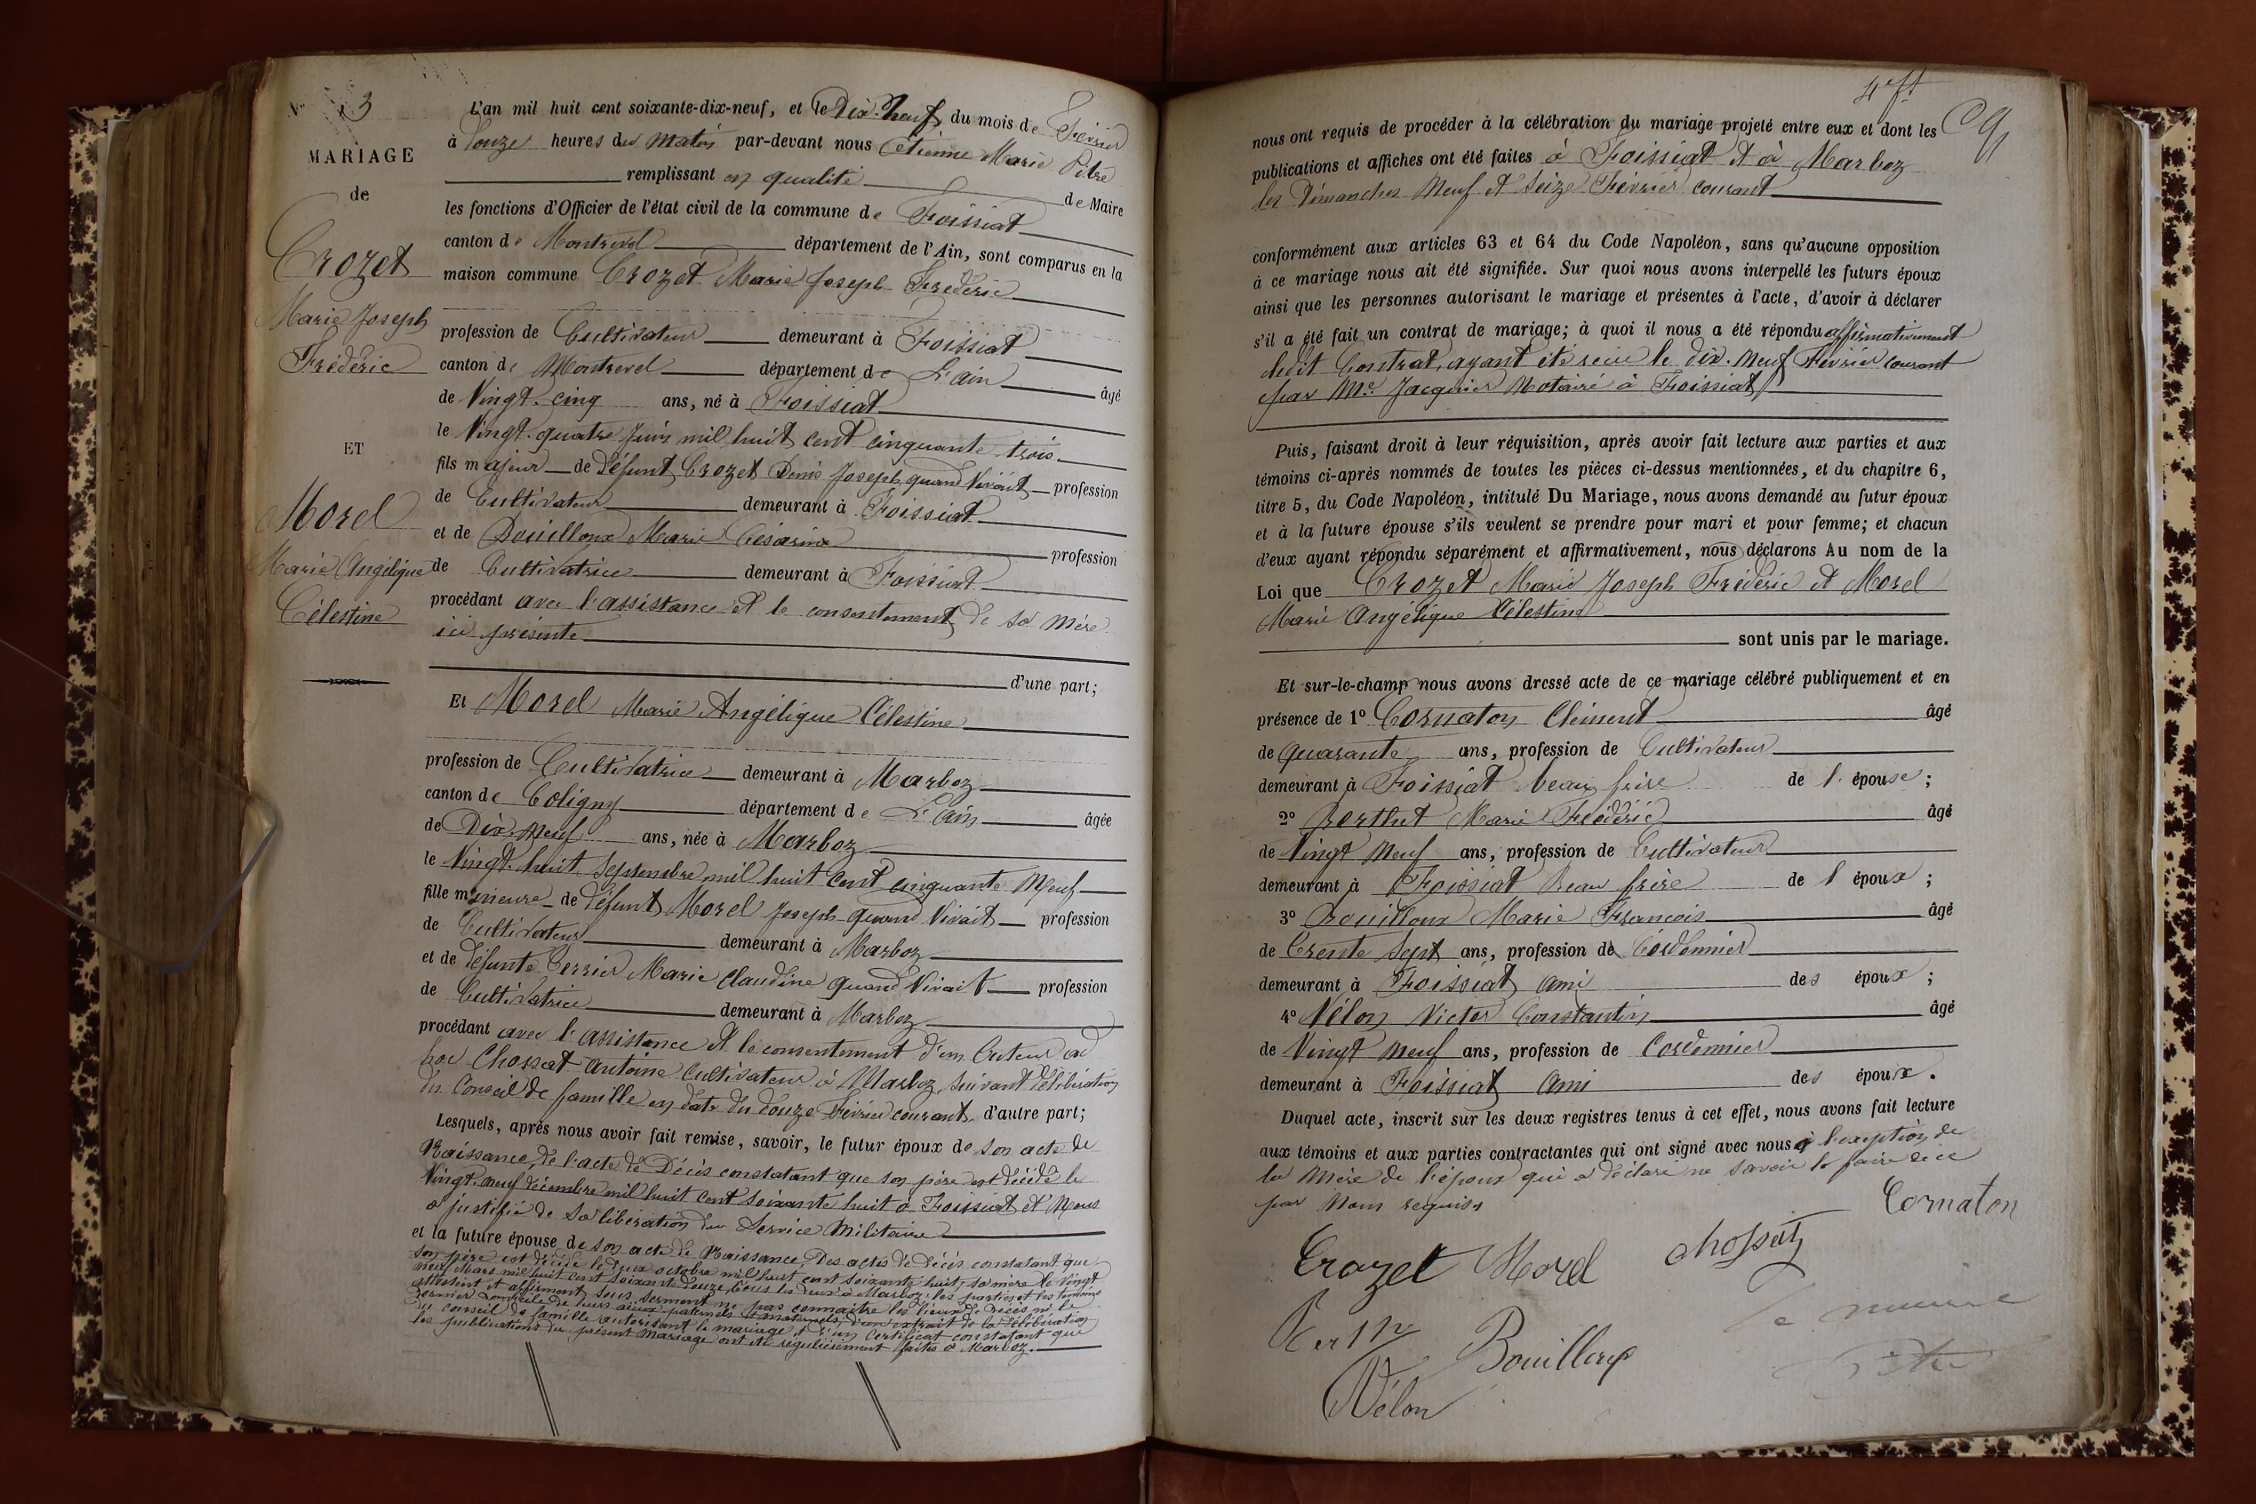 N° 13
MARIAGE
de
Crozet
Marie Joseph
Frédéric
ET
Morel
Marie Angélique
Célestine
L'an mil huit cent soixante-dix-neuf, et le Dix-Neuf du mois de Février
à Onze heures du Matin par-devant nous Etienne Marie Pitre
remplissant en qualité de Maire
les fonctions d'Officier de l'état civil de la commune de Foissiat
canton de Montrevel département de l'Ain, sont comparus en la
maison commune Crozet Marie Joseph Frédéric
profession de Cultivateur demeurant à Foissiat
canton de Montrevel département de L'ain âgé
de Vingt-cinq ans, né à Foissiat
le Vingt-quatre Juin mil huit cent cinquante-trois
fils majeur de défunt Crozet Denis Joseph quand Vivait profession
de Cultivateur demeurant à Foissiat
et de Bouilloux Marie Césarine profession
de Cultivatrice demeurant à Foissiat
procédant avec l'assistance et le consentement de sa mère
ici présente
d'une part;
Et Morel Marie Angélique Célestine
profession de Cultivatrice demeurant à Marboz
canton de Coligny département de L'Ain âgée
de Dix-Neuf ans, née à Marboz
le Vingt-huit Septembre mil huit cent cinquante Neuf
fille mineure de défunt Morel Joseph quand Vivait profession
de Cultivateur demeurant à Marboz
et de défunte Perrier Marie Claudine quand Vivait profession
de Cultivatrice demeurant à Marboz
procédant avec l'assistance et le consentement d'un Tuteur ad
hoc Chossat Antoine Cultivateur à Marboz, suivant délibération
du Conseil de famille en date du douze Février courant, d'autre part;
Lesquels, après nous avoir fait remise, savoir, le futur époux de son acte de
Naissance, de l'acte de Décès constatant que son père est décédé le
Vingt-neuf décembre mil huit cent soixante huit à Foissiat et Nous
a justifié de sa libération du Service Militaire
et la future épouse de son acte de Naissance, des actes de décès constatant que
son père est décédé le deux octobre mil huit cent soixante huit, sa mère le Vingt
neuf Mars mil huit cent soixante douze, tous les deux à Marboz; les parties et les témoins
attestent et affirment sous serment ne pas connaître les lieux de décès ni le
dernier domicile de leurs aïeux paternels et maternels, d'un extrait de la délibération
du conseil de famille autorisant le mariage, et d'un Certificat constatant que
les publications du présent mariage ont été régulièrement faites à Marboz.
nous ont requis de procéder à la célébration du mariage projeté entre eux et dont les
publications et affiches ont été faites à Foissiat et à Marboz
les Dimanches Neuf et Seize Février courant
conformément aux articles 63 et 64 du Code Napoléon, sans qu'aucune opposition
à ce mariage nous ait été signifiée. Sur quoi nous avons interpellé les futurs époux
ainsi que les personnes autorisant le mariage et présentes à l'acte, d'avoir à déclarer
s'il a été fait un contrat de mariage; à quoi il nous a été répondu affirmativement
dudit Contrat, ayant été reçu le dix-Neuf Février courant
par Me Jacquier Notaire à Foissiat
Puis, faisant droit à leur réquisition, après avoir fait lecture aux parties et aux
témoins ci-après nommés de toutes les pièces ci-dessus mentionnées, et du chapitre 6,
titre 5, du Code Napoléon, intitulé Du Mariage, nous avons demandé au futur époux
et à la future épouse s'ils veulent se prendre pour mari et pour femme; et chacun
d'eux ayant répondu séparément et affirmativement, nous déclarons Au nom de la
Loi que Crozet Marie Joseph Frédéric et Morel
Marie Angélique Célestine
sont unis par le mariage.
Et sur-le-champ nous avons dressé acte de ce mariage célébré publiquement et en
présence de 1° Cornaton Clément âgé
de quarante ans, profession de Cultivateur
demeurant à Foissiat beau frère de l'épouse;
2° Berthet Marie Frédéric âgé
de Vingt Neuf ans, profession de Cultivateur
demeurant à Foissiat Beau frère de l'époux;
3° Bouilloux Marie François âgé
de Trente Sept ans, profession de Cordonnier
demeurant à Foissiat ami des époux;
4° Vélon Victor Constantin âgé
de Vingt Neuf ans, profession de Cordonnier
demeurant à Foissiat Ami des époux.
Duquel acte, inscrit sur les deux registres tenus à cet effet, nous avons fait lecture
aux témoins et aux parties contractantes qui ont signé avec nous à l'exception de
la Mère de l'époux qui a déclaré ne Savoir le faire de ce
par Nous requise
Cornaton
Crozet Morel Chossat
Le maire
Bouilloux
Pitre
Vélon